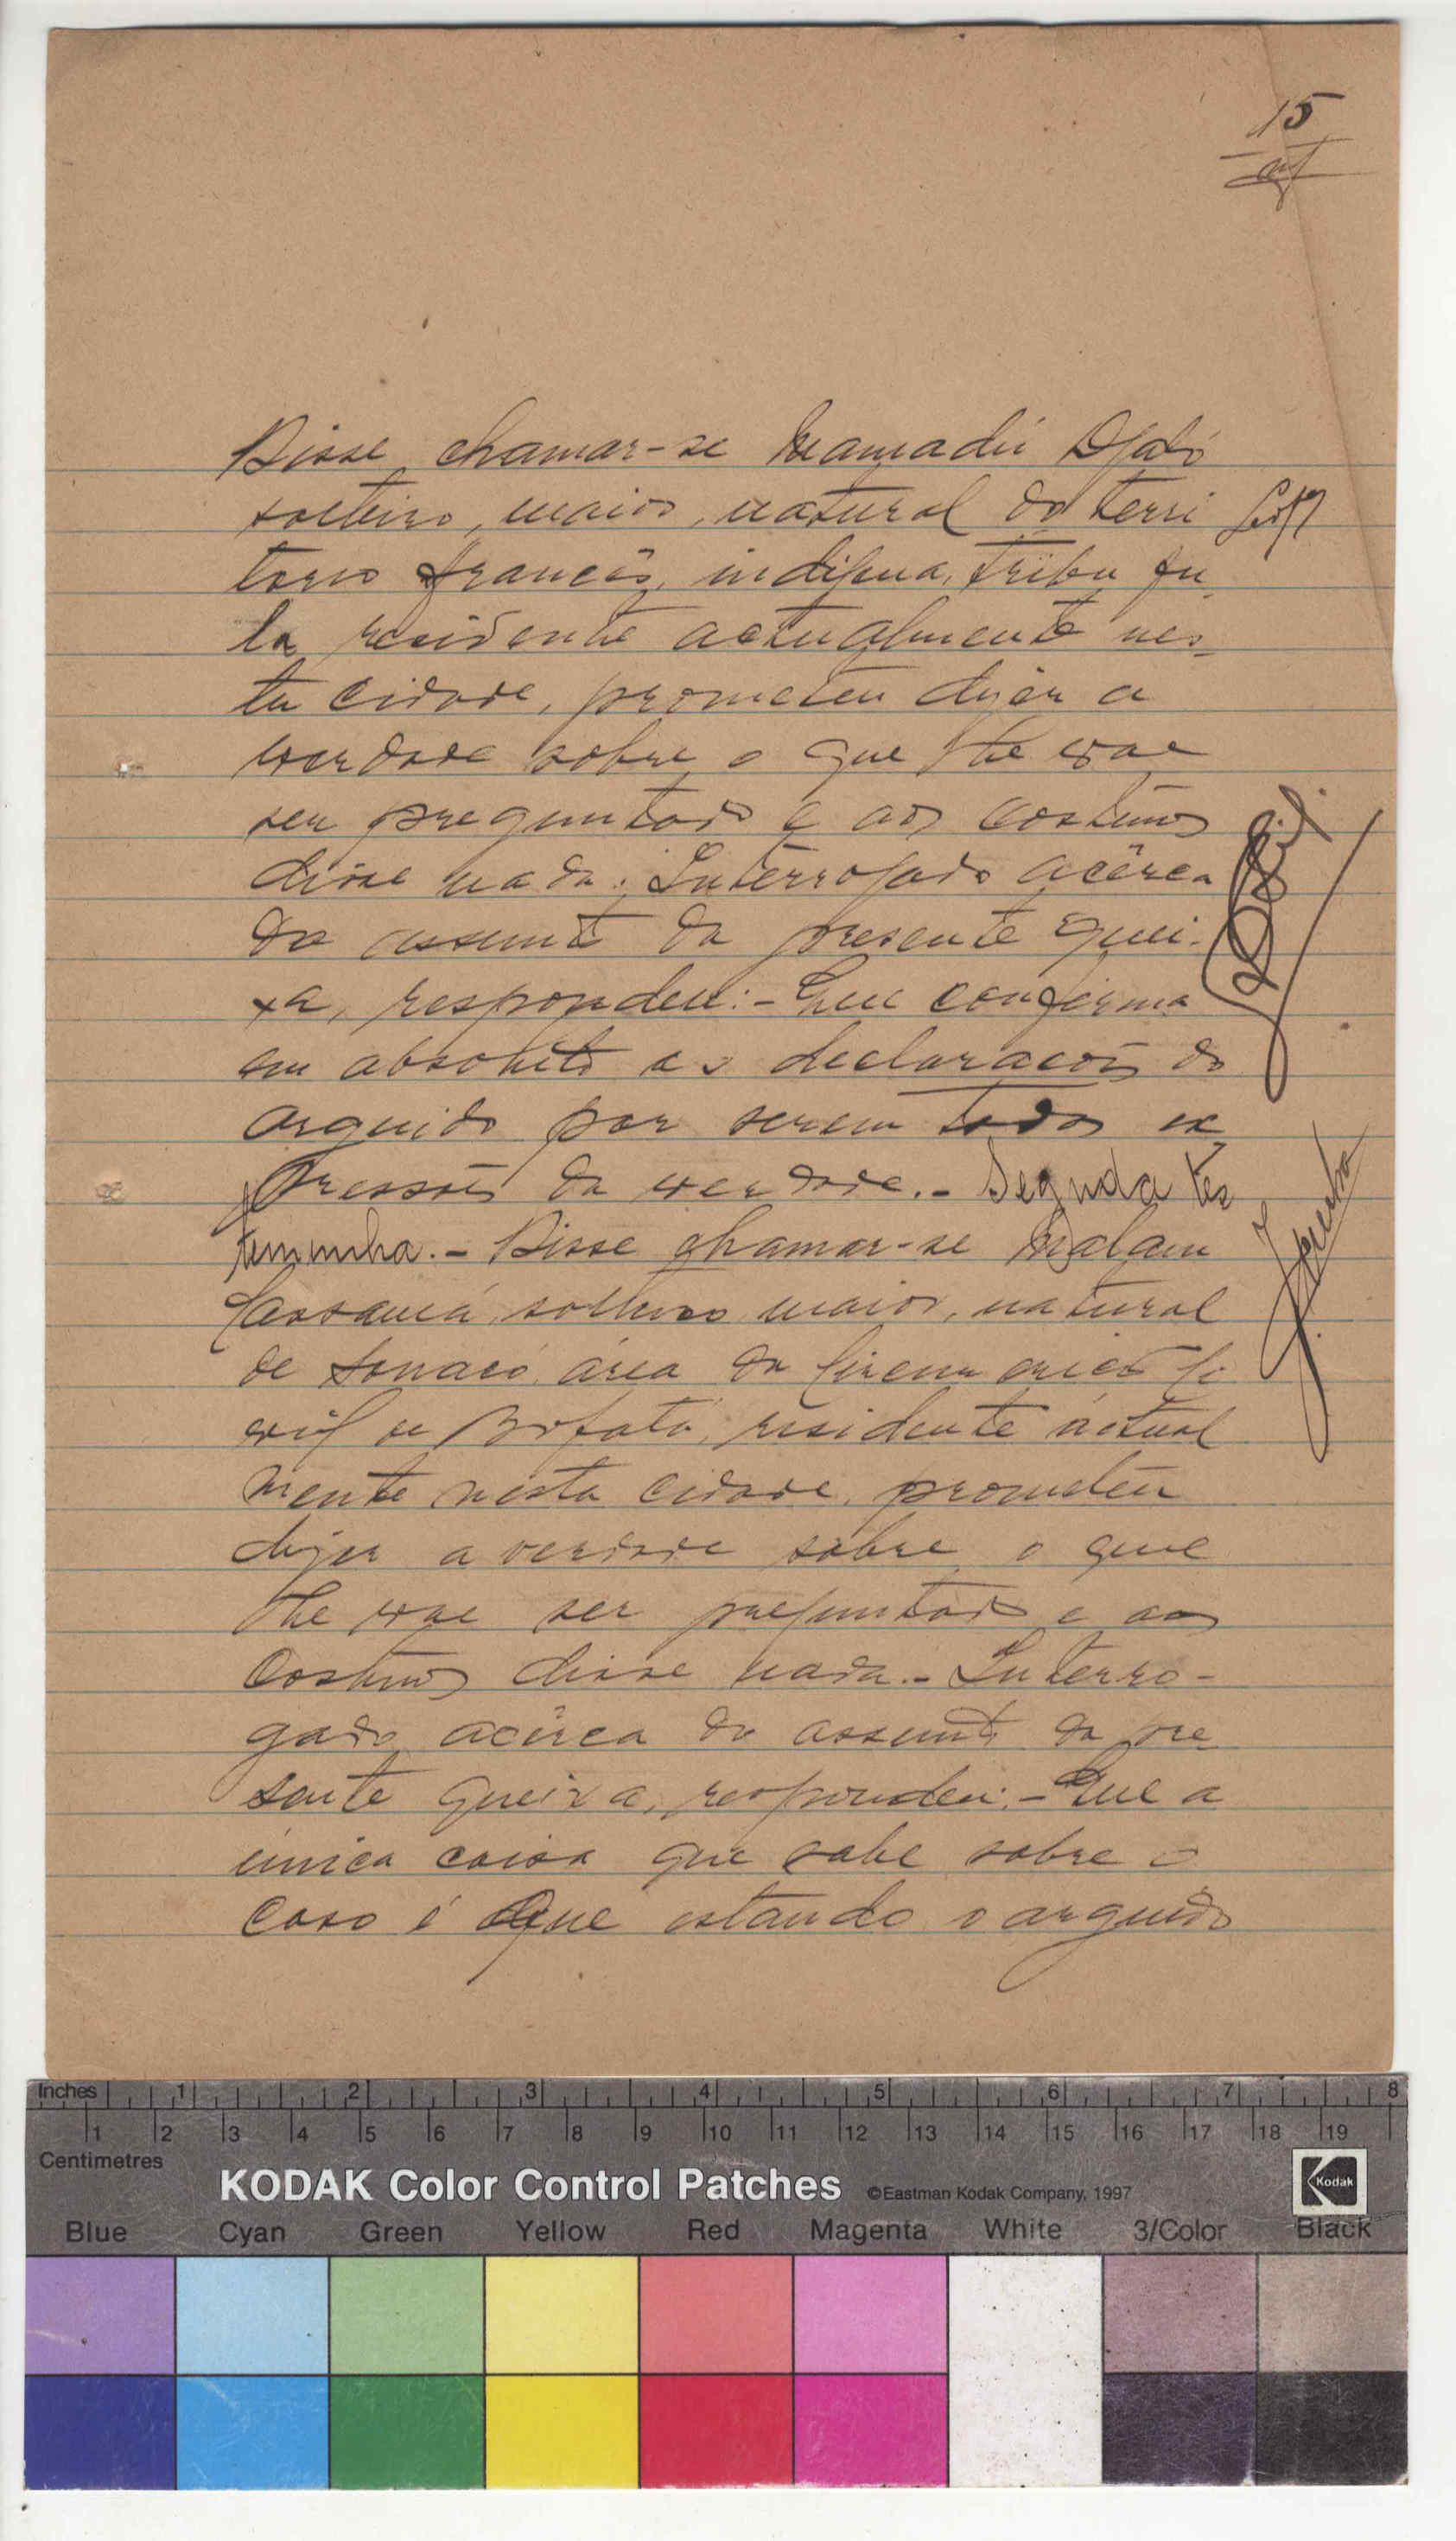 15
Disse chamar-se Mamadú Djaló
solteiro, maior, natural do terri
torio francês, indigena, tribu fu_
la residente actualmente nes_
ta cidade, prometeu dizer a
verdade sobre o que lhe vae
ser preguntado e aos costumes
disse nada. Interrogado acêrca
do assunto da presente quei-
xa, respondeu:- Que confirma
em absoluto as declarações do
arguido por serem todas ex_
pressões da verdade.- Segunda tes
temunha.- Disse chamar-se Malam
Cassamá, solteiro, maior, natural
de Sonacó, área da Circunscrição Ci
vil de Bafatá, residente actual
mente nesta cidade, prometeu
dizer a verdade sobre o que
lhe vae ser preguntado e aos
costumes disse nada.- Interro-
gado acêrca do assunto da pre_
sente queixa, respondeu:- Que a
única coisa que sabe sobre o
caso é que estando o arguido
Inches 1 2 3 4 5 6 7 8
1 2 3 4 5 6 7 8 9 10 11 12 13 14 15 16 17 18 19
Centimetres
KODAK Color Control Patches ©Eastman Kodak Company, 1997 Kodak
Blue Cyan Green Yellow Red Magenta White 3/Color Black